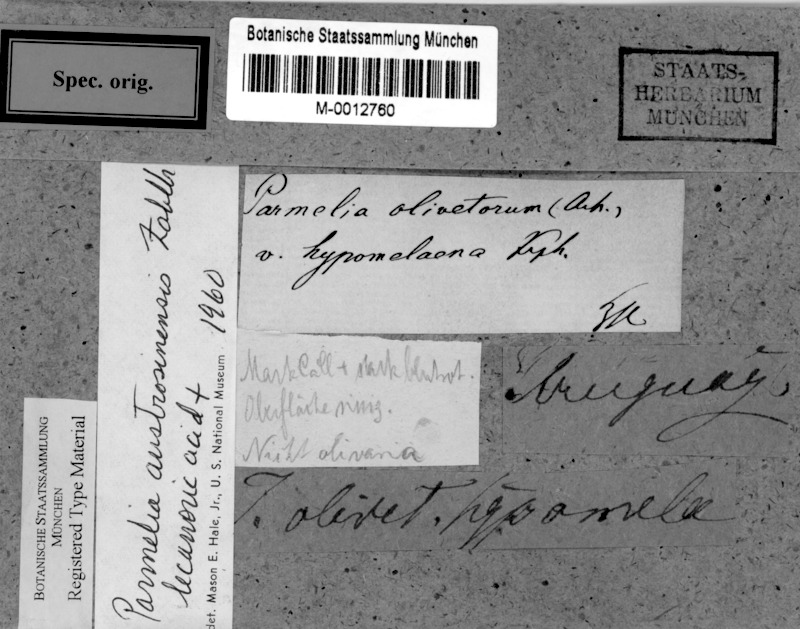 Spec. orig.
Botanische Staatssammlung München
M-0012760
STAATS-
HERBARIUM
MÜNCHEN
Parmelia olivetorum (Ach.,
v. hypomelaena Krph.
Mark Call + stark blutrot.
Oberfläche rissig.
Nicht olivaria
Uruguay.
olivet. hypomela
Parmelia austrosinensis Zahlbr
lecanoric acid +
1960
det. Mason E. Hale, Jr., U. S. National Museum
BOTANISCHE STAATSSAMMLUNG
MÜNCHEN
Registered Type Material